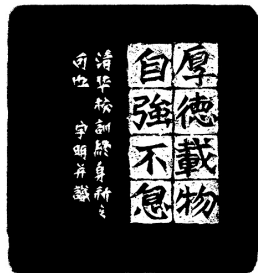 厚德載物
自強不息
清华校訓終身祈之
宇明并識